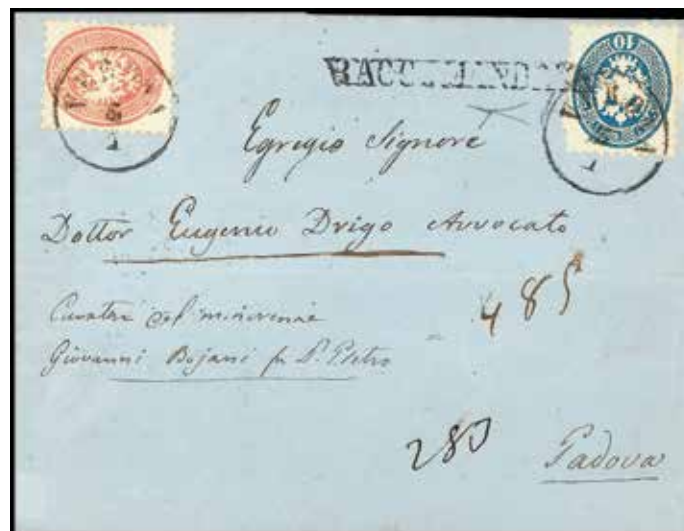 10
RACCOMANDATA
Egregio Signore
Dottor Eugenio Drigo Avvocato
Curatore del minorenne
Giovanni Bojani fu P. Pietro
485
283
Padova